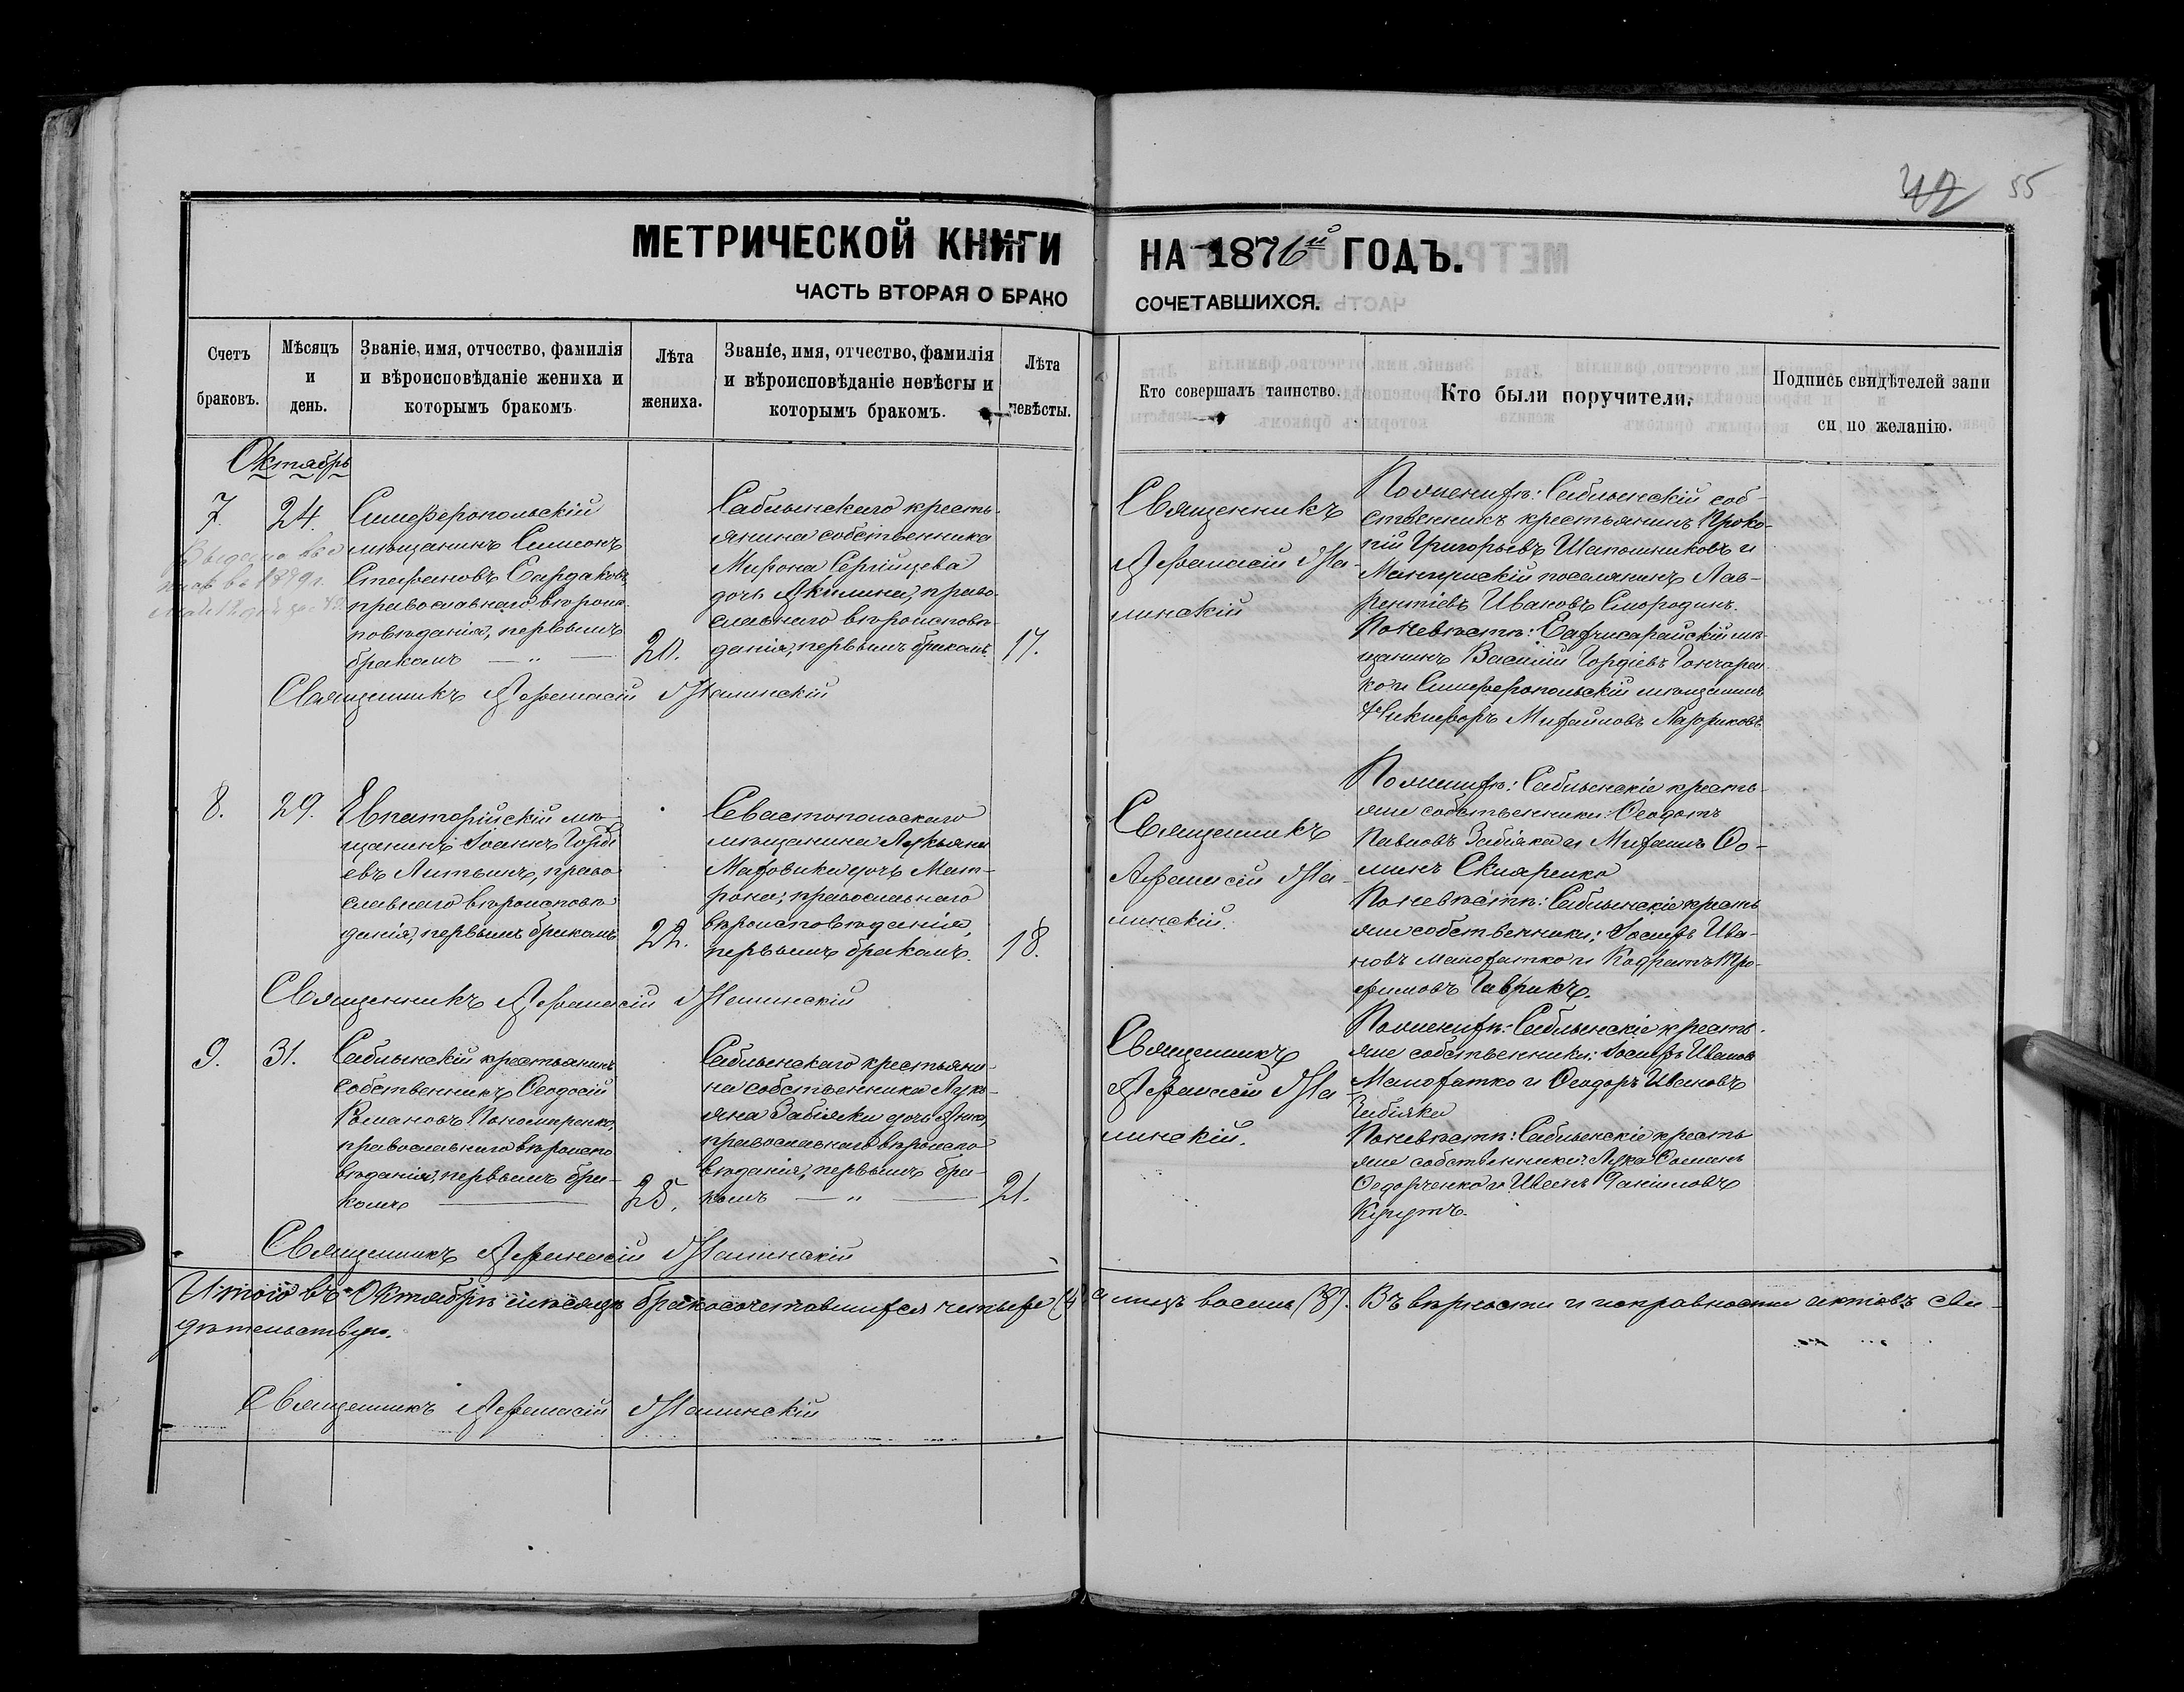 42 55
МЕТРИЧЕСКОЙ КНИГИ
НА 1876й ГОДЪ.
ЧАСТЬ ВТОРАЯ О БРАКО
СОЧЕТАВШИХСЯ.
Счетъ
браковъ.
Мѣсяцъ
и
день.
Званіе, имя, отчество, фамилія
и вѣроисповѣданіе жениха и
которымъ бракомъ
Лѣта
жениха.
Званіе, имя, отчество, фамилія
и вѣроисповѣданіе невѣсты и
которымъ бракомъ.
Лѣта
невѣсты.
Кто совершалъ таинство.
Кто были поручители.
Подпись свидѣтелей запи
си по желанію.
Октябрь
7.
24.
Симферопольскій
мѣщанинъ Симеонъ
Стефановъ Сардаковъ,
православнаго вѣроис-
повѣданія, первымъ
бракомъ — „ —
20.
Саблынскаго кресть-
янина собственника
Мирона Сергійцева
дочь Акилина, право-
славнаго вѣроисповѣ-
данія, первымъ бракомъ.
17.
Священникъ
Афанасій
линскій
Поженихѣ: Саблынскій соб-
ственникъ крестьянинъ Проко-
пій Григорьевъ Шапошниковъ и
Мангушскій поселянинъ Лав-
рентіевъ Ивановъ Смородинъ.
Поневѣстѣ: Бахчисарайскій мѣ-
щанинъ Василій Гордіевъ Гончарен-
ко и Симферопольскій мѣщанинъ
Никифоръ Михайловъ
Священникъ Афанасій
8.
29.
Евпаторійскій мѣ-
щанинъ Іоаннъ Горді-
евъ Литвинъ, право-
славнаго вѣроисповѣ-
данія, первымъ бракомъ
22.
Севастопольскаго
мѣщанина Лукьяна
Маховика дочь Мат-
рона, православнаго
вѣроисповѣданія,
первымъ бракомъ.
18.
Священникъ
Афанасій
линскій.
Поженихѣ: Саблынскіе кресть-
яне собственники: Ѳеодотъ
Павловъ Забіяка и Михаилъ Ѳо-
минъ Скляренко
Поневѣстѣ: Саблынскіе кресть
яне собственники: Іосифъ Ива-
новъ Малофатко и Кодратъ Тро-
фимовъ Гаврикъ.
Священникъ Афанасій
9.
31.
Саблынскій крестьянинъ
собственникъ Ѳеодосій
Романовъ Пономаренко,
православнаго вѣроиспо
вѣданія, первымъ бра-
комъ —
25.
Саблынскаго крестьяни-
на собственника Лукь-
яна Забіяки дочь Анна,
православнаго вѣроиспо
вѣданія, первымъ бра-
комъ — „ —
21.
Священникъ
Афанасій
линскій.
Поженихѣ: Саблынскіе кресть-
яне собственники: Іосифъ Ивановъ
Малофатко и Ѳеодоръ Ивановъ
Забіяка
Поневѣстѣ: Саблынскіе кресть
яне собственники: Лука Ѳоминъ
Ѳедорченко и Иванъ Даниловъ
Священникъ Афанасій
Итого въ Октябрѣ мѣсяцѣ бракосочетавшихся четыре (4) а лицъ восемь (8). Въ вѣрности и исправности актовъ сви-
дѣтельствую.
Священникъ Афанасій